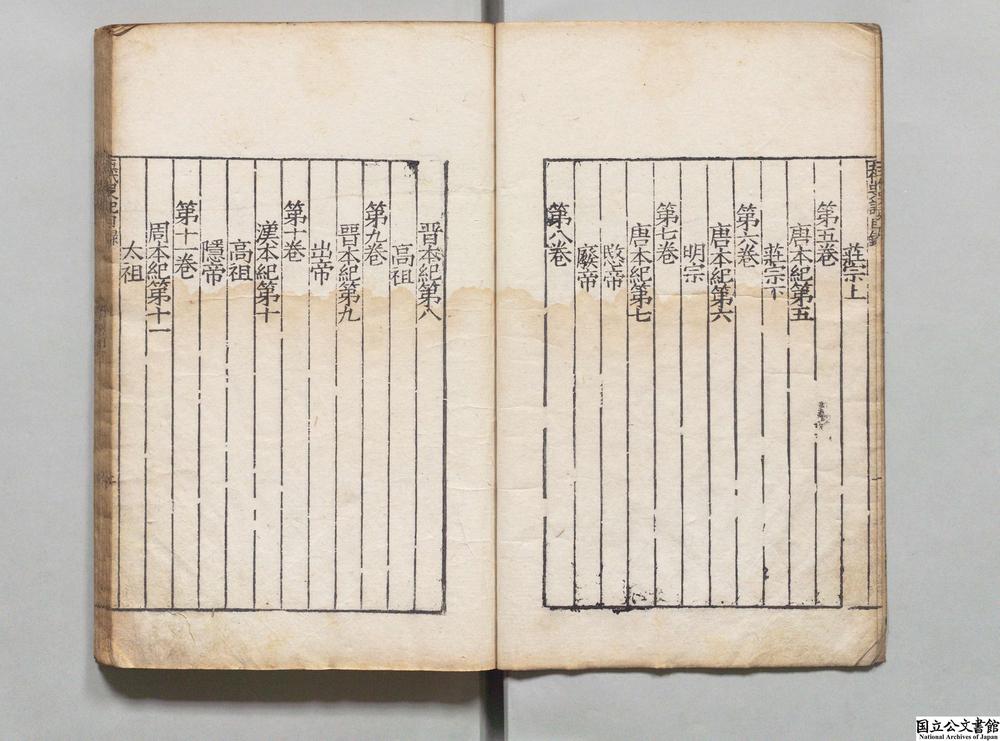 莊宗上
第五卷
唐本紀第五
莊宗下
第六卷
唐本紀第六
明宗
第七卷
唐本紀第七
愍帝
廢帝
第八卷
晋本紀第八
高祖
第九卷
晋本紀第九
出帝
第十卷
漢本紀第十
高祖
隱帝
第十一卷
周本紀第十一
太祖
国立公文書館
National Archives of Japan